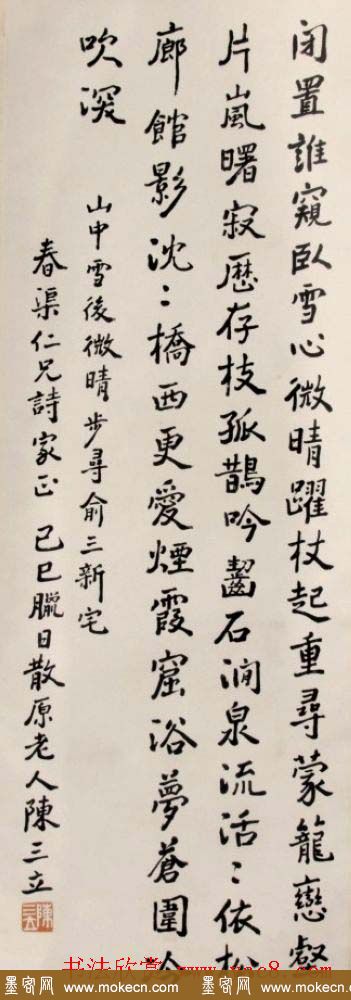 闭置誰窺臥雪心微晴躍杖起重尋蒙籠戀壑
片嵐曙寂歷存枝孤鵲吟齧石澗泉流活〻依松
廊館影沈〻橋西更愛煙霞窟浴夢蒼圍
吹深
山中雪後微晴步尋俞三新宅
春渠仁兄詩家正 己巳臘日散原老人陳三立
书法欣赏
墨客网 www.mokecn.com 墨客网 www.mokecn.com